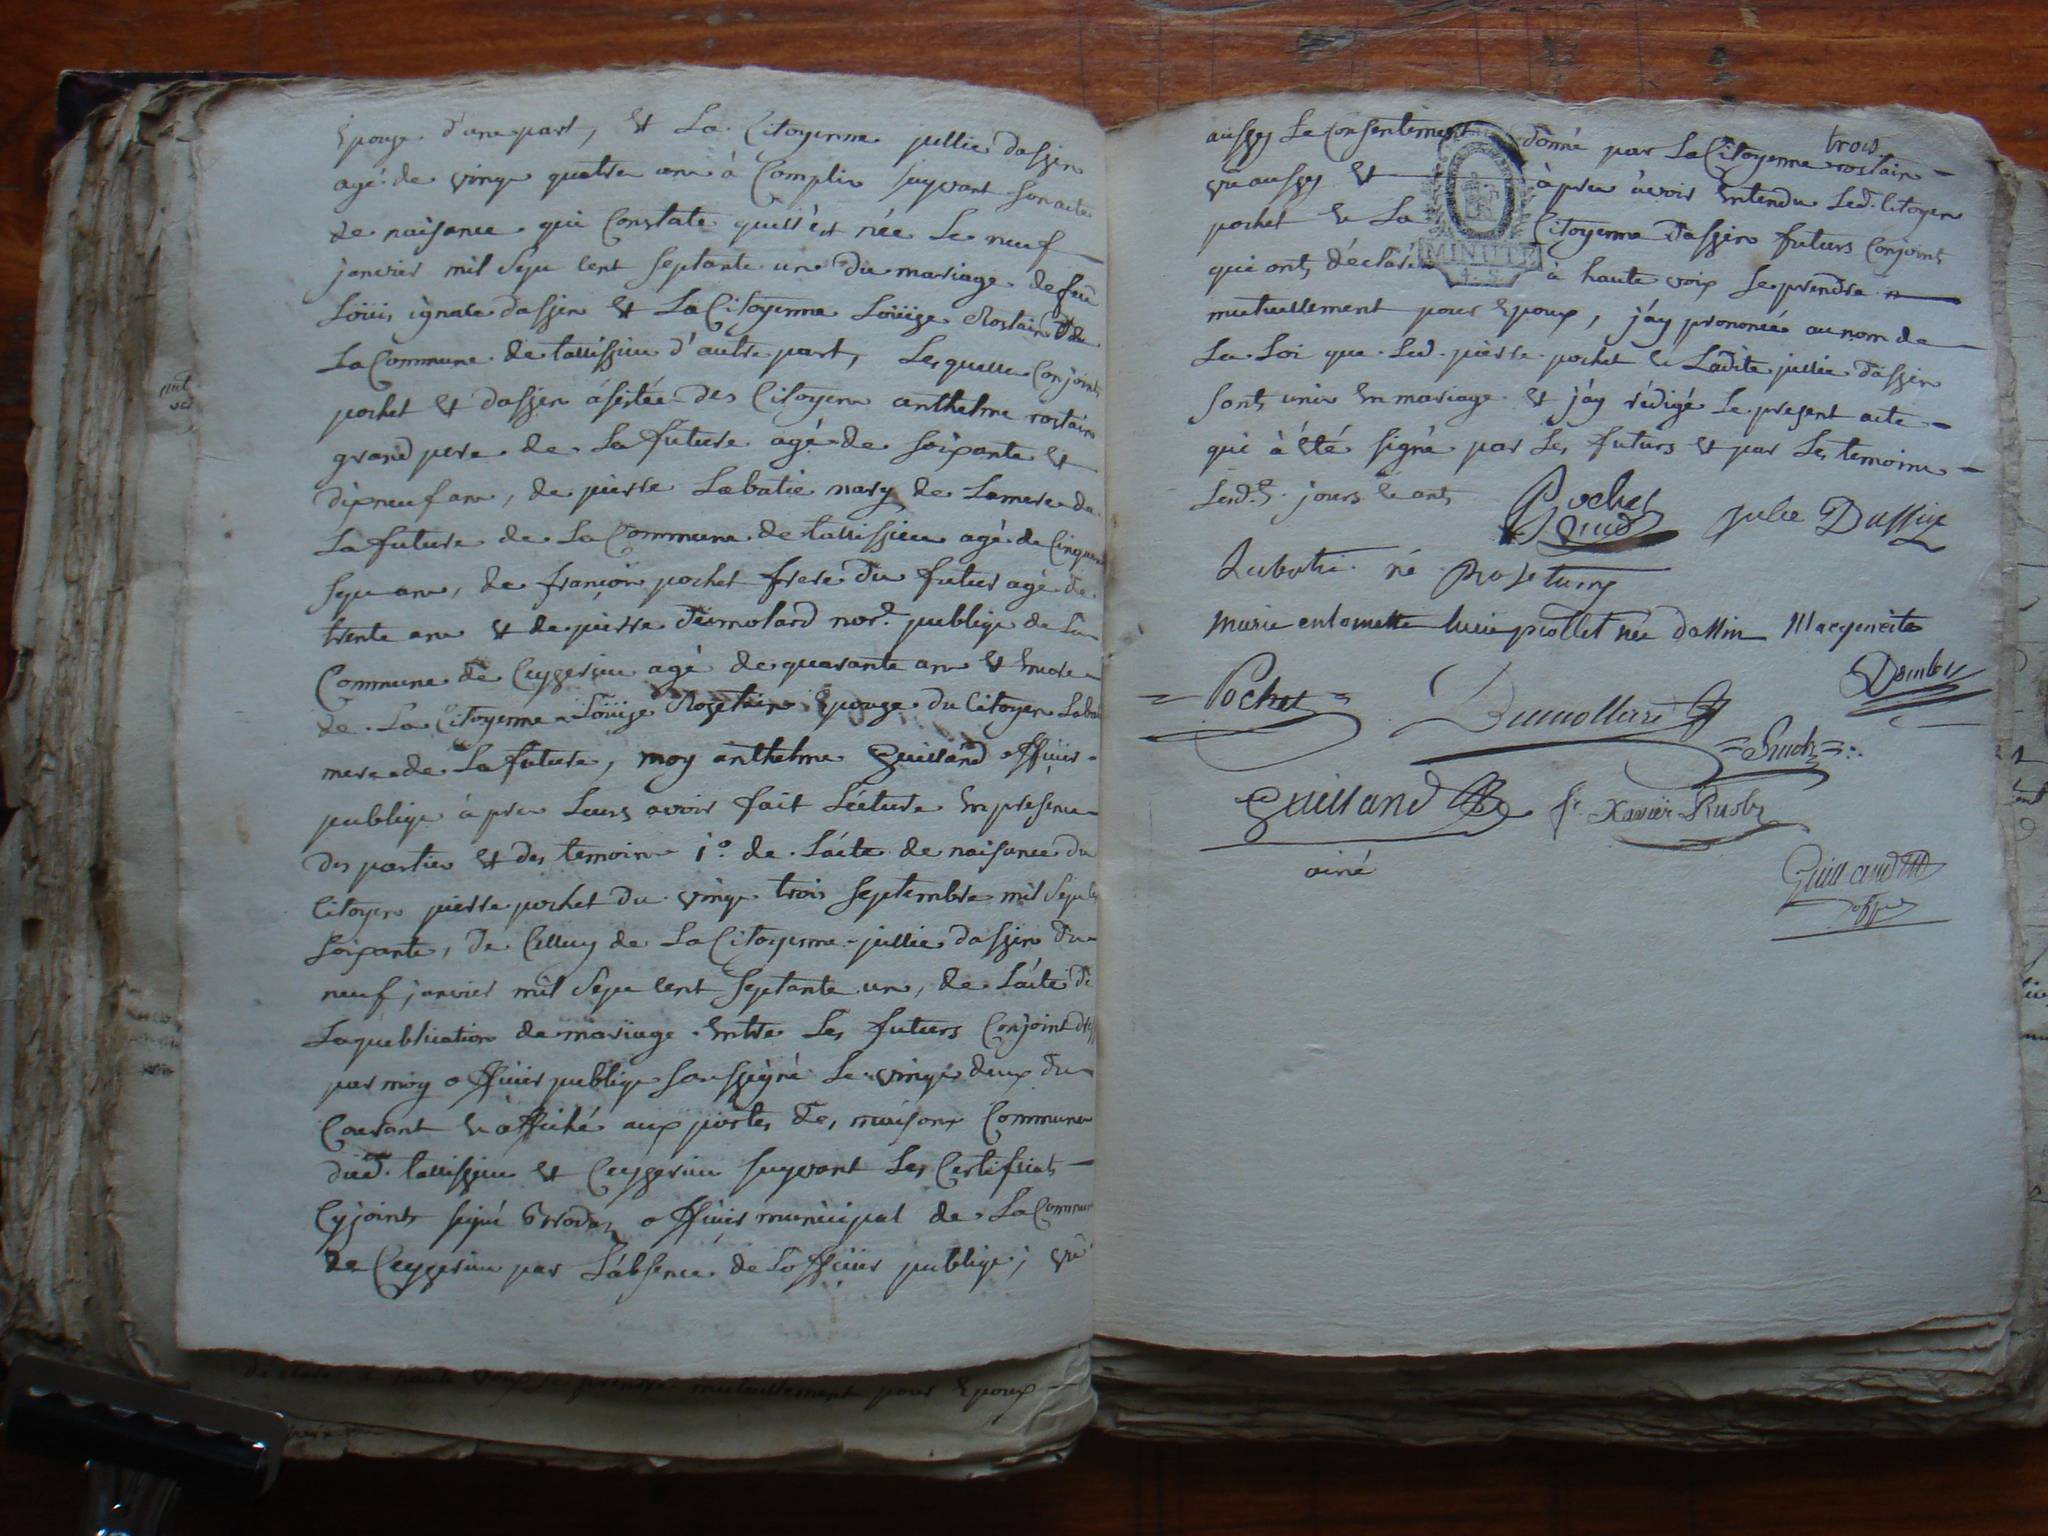 Epouze d'une part, et La Citoyenne jullie dassin
agé de vingt quatre ans à Complir suyvant son acte
de naisance qui Constate quell'est née Le neuf
janvier mil Sept cent septante un du mariage de feu
Loüis ignace dassin et La Citoyenne Loüize Rostain de
La Commune de talissieu d'autre part, Lesquels Conjoints
pochet et dassin asistée des Citoyens anthelme rostain
grand pere de La future agé de soixante et
dixneuf ans, de pierre Labatie mary de Lamere de
La future de La Commune de talissieu agé de Cinquante
Sept ans, de françois pochet frere du futur agé de
trente ans et de pierre dumolard nore. publiqe de La
Commune de Ceyzerieu agé de quarante ans et Encore
de La Citoyenne Loüize Rozetain Epouze du Citoyen Labatie
mere de La future, moy anthelme Guilland officier
publiqe à pres Leurs avoir fait Lecture En presence
des parties et des temoins 1o. de L'acte de naisance du
Citoyen pierre pochet du vingt trois septembre mil Sept cent
soixante, de Celluy de La Citoyenne jullie dassin du
neuf janvier mil Sept cent septante un, de L'acte de
La publication de mariage Entre Les futurs Conjoint
par moy officier publiqe soussigné Le vingt deux du
Courant et affiché aux portes des maisons Communes
dud. talissieu et Ceyzerieu suyvant Les Certificats
Cyjoints signé officier municipal de La Commune
de Ceyzerieu par L'absence de L'officier publiqe ; vu
trois
aussy Le Consentement donné par La Citoyenne rostain
vu aussy et à pres avoir Entendu Led. Citoyen
pochet et La Citoyenne dassin futurs Conjoints
MINUTE
4. S.
qui ont déclaré à haute voix se prendre
mutuellement pour Epoux, j'ay prononcé au nom de
La Loi que Led. pierre pochet et Ladite jullie dassin
sont unis En mariage et j'ay rédigé Le present acte
qui à été signé par Les futurs et par Les temoins
Lesd. jours et ans Pochet Julie Dassin
Labati né
marie entoinette lucie piollet née dassin Marguerite
Pochet Dumollard
Guilland fs. Xavier
ainé
Guilland